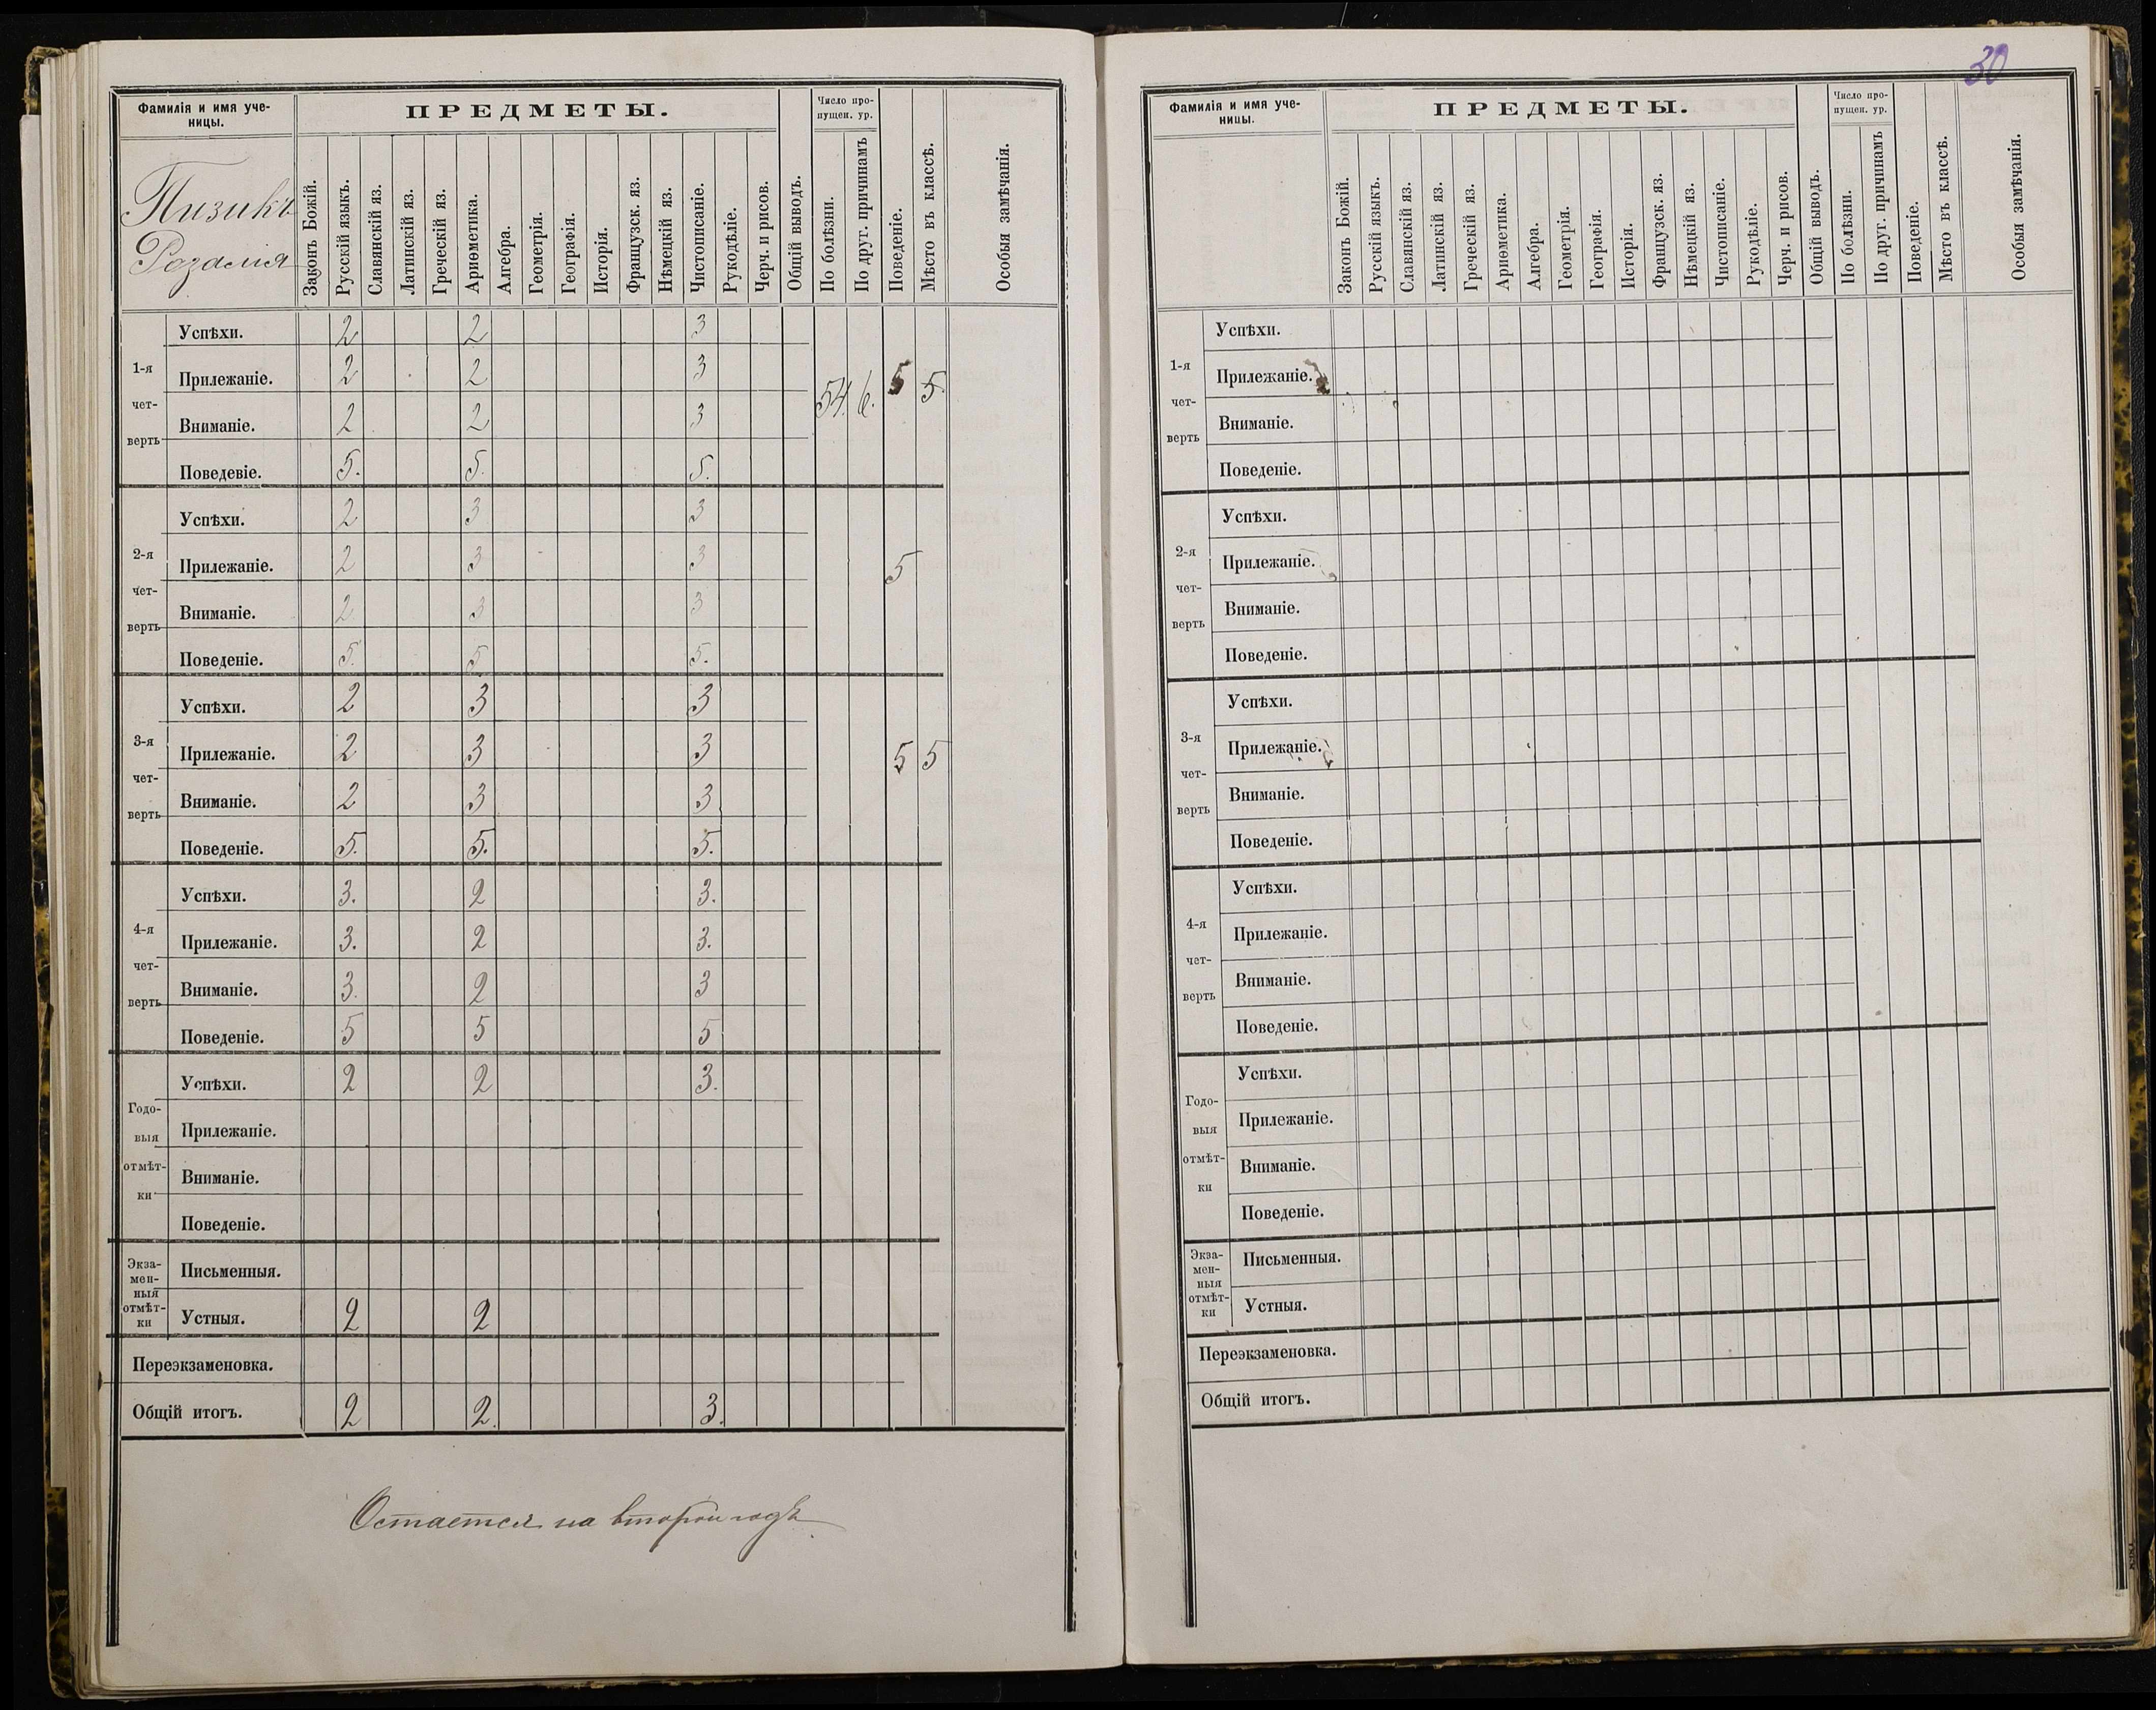 Фамилія и имя уче-
ницы.
ПРЕДМЕТЫ.
Число про-
пущен. ур.
Пизикъ
Розалія
Законъ Божій.
Русскій языкъ.
Славянскій яз.
Латинскій яз.
Греческій яз.
Ариѳметика.
Алгебра.
Геометрія.
Географія.
Исторія.
Французск. яз.
Нѣмецкій яз.
Чистописаніе.
Рукодѣліе.
Черч. и рисов.
Общій выводъ.
По болѣзни.
По друг. причинамъ
Поведеніе.
Мѣсто въ классѣ.
Особыя замѣчанія.
1-я
чет-
верть
Успѣхи. 2 2 3
Прилежаніе. 2 2 3
54. 6. 5 5.
Вниманіе. 2 2 3
Поведевіе. 5. 5. 5.
2-я
чет-
верть
Успѣхи. 2 3 3
Прилежаніе. 2 3 3 5
Вниманіе. 2 3 3
Поведеніе. 5. 5 5.
3-я
чет-
верть
Успѣхи. 2 3 3
Прилежаніе. 2 3 3 5 5
Вниманіе. 2 3 3
Поведеніе. 5. 5. 5.
4-я
чет-
верть
Успѣхи. 3. 2 3.
Прилежаніе. 3. 2 3.
Вниманіе. 3. 2 3
Поведеніе. 5 5 5
Годо-
выя
отмѣт-
ки
Успѣхи. 2 2 3.
Прилежаніе.
Вниманіе.
Поведеніе.
Экза-
мен-
ныя
отмѣт-
ки
Письменныя.
Устныя. 2 2
Переэкзаменовка.
Общій итогъ. 2 2. 3.
Остается на второй годъ
30
Фамилія и имя уче-
ницы.
ПРЕДМЕТЫ.
Число про-
пущен. ур.
Законъ Божій.
Русскій языкъ.
Славянскій яз.
Латинскій яз.
Греческій яз.
Ариѳметика.
Алгебра.
Геометрія.
Географія.
Исторія.
Французск. яз.
Нѣмецкій яз.
Чистописаніе.
Рукодѣліе.
Черч. и рисов.
Общій выводъ.
По болѣзни.
По друг. причинамъ
Поведеніе.
Мѣсто въ классѣ.
Особыя замѣчанія.
1-я
чет-
верть
Успѣхи.
Прилежаніе.
Вниманіе.
Поведеніе.
2-я
чет-
верть
Успѣхи.
Прилежаніе.
Вниманіе.
Поведеніе.
3-я
чет-
верть
Успѣхи.
Прилежаніе.
Вниманіе.
Поведеніе.
4-я
чет-
верть
Успѣхи.
Прилежаніе.
Вниманіе.
Поведеніе.
Годо-
выя
отмѣт-
ки
Успѣхи.
Прилежаніе.
Вниманіе.
Поведеніе.
Экза-
мен-
ныя
отмѣт-
ки
Письменныя.
Устныя.
Переэкзаменовка.
Общій итогъ.